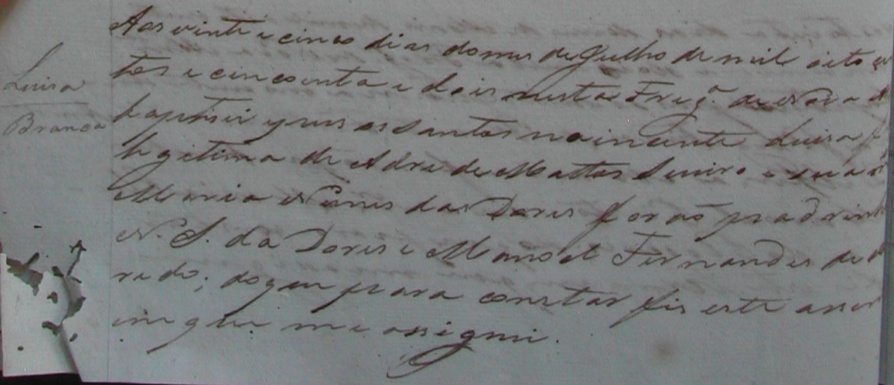 Luisa
Branca
Aos vinte e cinco dias do mes de Julho de mil oito
tos e cincoenta e dois nesta Freg.ª de N
baptisei e pus os Santos no inocente Luisa f
legitima de de Mattos e sua
Maria Nunes das Dores forão padrin
N. S. da Dores e Manoel Fernandes de
rado; do que para constar fis este assen
im que me assignei.